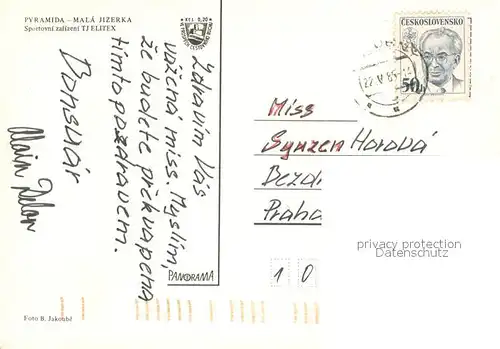 PYRAMIDA – MALÁ JIZERKA
Sportovní zařízení TJ ELITEX
KčS 0,20
Zdravím Vás
vážená miss. Myslím,
že budete překvapena
tímto pozdravem.
Bonsuár
Alain Delon
PANORAMA
Foto B. Jakoubě
ČESKOSLOVENSKO
50h
22.V.85
Miss
Syuzen Horová
Bezdi
Praha
1 0
privacy protection
Datenschutz